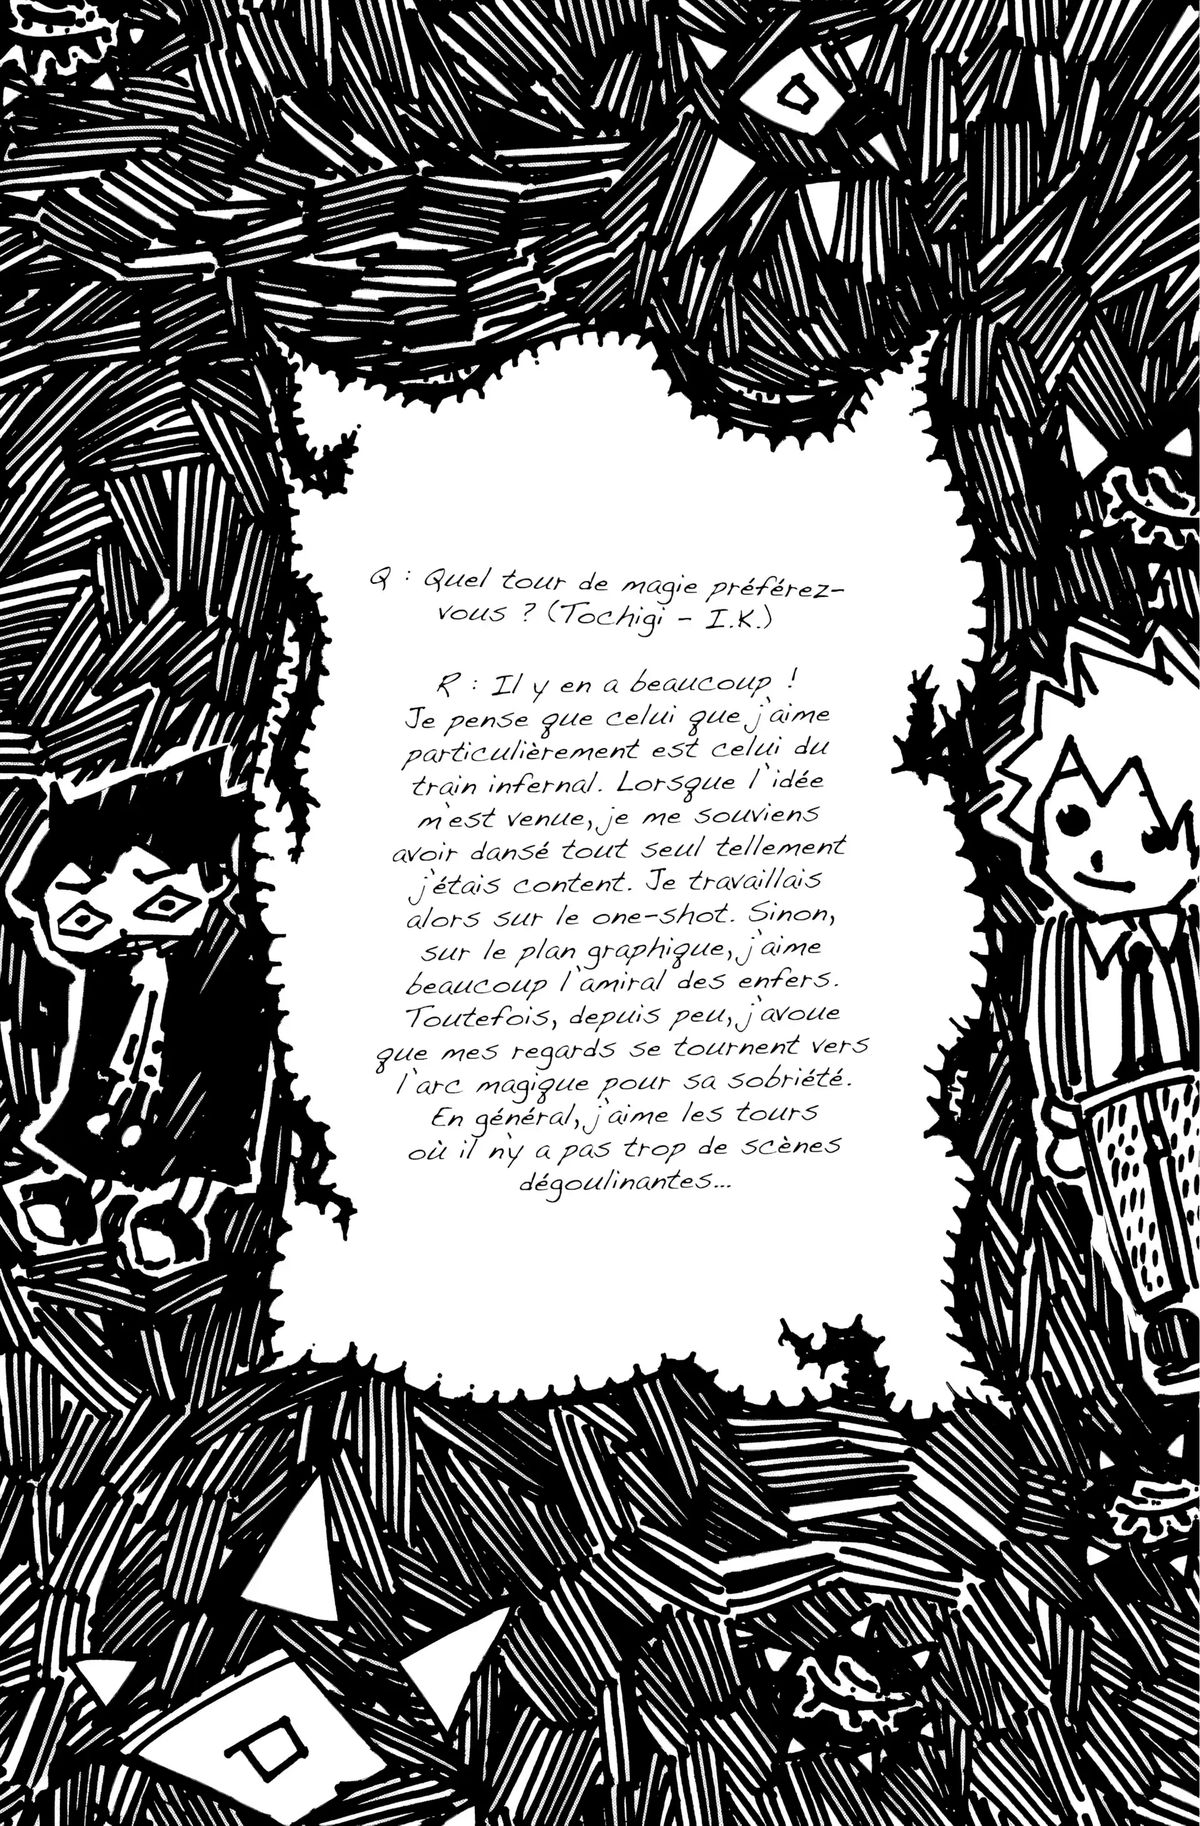 Q : Quel tour de magie préférez-
vous ? (Tochigi - I.K.)
R : Il y en a beaucoup !
Je pense que celui que j'aime
particulièrement est celui du
train infernal. Lorsque l'idée
m'est venue, je me souviens
avoir dansé tout seul tellement
j'étais content. Je travaillais
alors sur le one-shot. Sinon,
sur le plan graphique, j'aime
beaucoup l'amiral des enfers.
Toutefois, depuis peu, j'avoue
que mes regards se tournent vers
l'arc magique pour sa sobriété.
En général, j'aime les tours
où il n'y a pas trop de scènes
dégoulinantes...